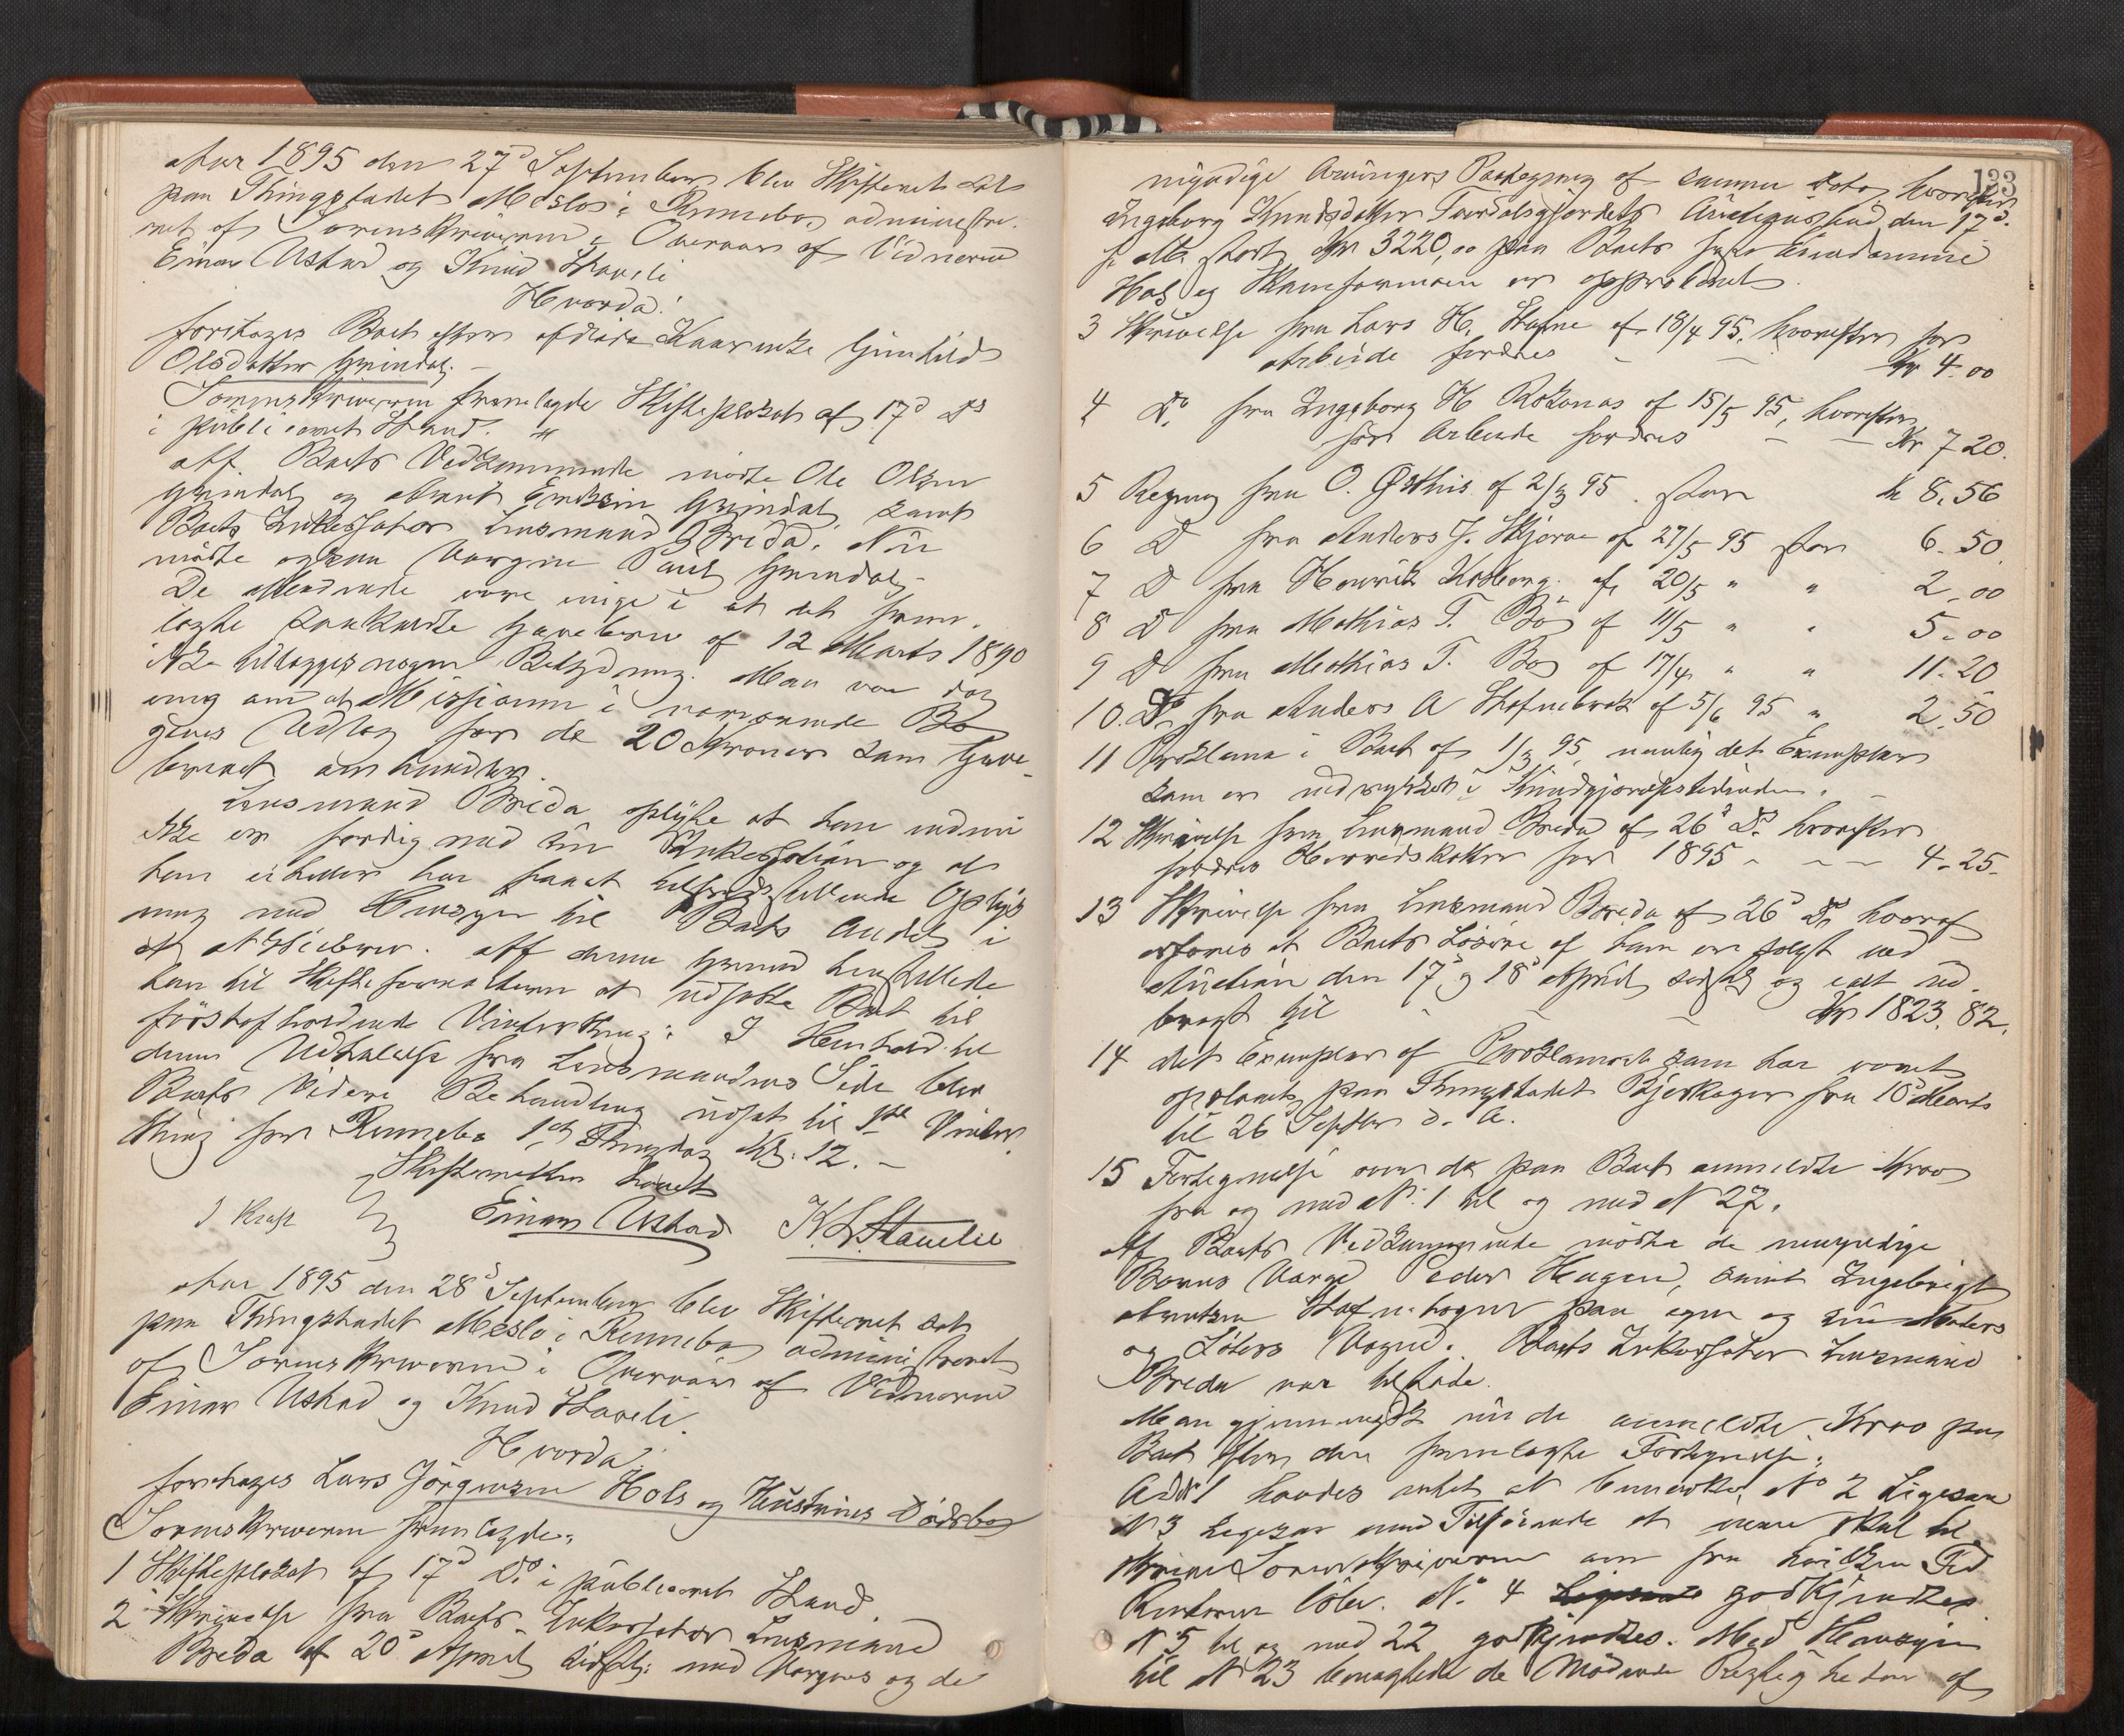 Aar 1895 den 27d September blev Skifteret sat
paa Thingstedet Meslo i Rennebo, administre-
ret af Sorenskriveren i Overvær af Vidnerne
Einar Ustad og Knud Staveli
Hvorda:
foretages Boet efter afdøde Kaarenke Gunhild
Olsdatter Grindal. –
Sorenskriveren fremlagde Skifteplakat af 17d Ds
i publiceret Stand.
Af Boets Vedkommende mødte Ole Olsen
Grindal og Arnt Grindal samt
Boets Inkassator Lensmand Breda. Nu
mødte ogsaa Værgen Poul Grindal.
De Mødende vare enige i at det frem-
lagte saakaldte Gavebrev af 12 Marts 1890
ikke tillægges nogen Betydning. Man var dog
enig om at Missionen i nærværende Bo
gives Udlæg for de 20 Kroner som Gave-
brevet omhandler.
Lensmand Breda oplyste at han endnu
ikke er færdig med sin Inkassation og at
han ei heller har faaet tilfredsstillende Oplys-
ning med Hensyn til Boets Andel i
et Aktiebrev. Af denne Grund henstillede
han til Skifteforvalteren at udsætte Boet til
førstafholdende Vinterthing. I Henhold til
denne Udtalelse fra Lensmandens Side blev
Boets videre Behandling udsat til 1ste Vinter-
thing for Rennebo 1ste Thingdag Kl. 12. –
Skifteretten hævet
J Kraft Einar Ustad K. L. Stavelie
Aar 1895 den 28d September blev Skifteret sat
paa Thingstedet Meslo i Rennebo, administreret
af Sorenskriveren i Overvær af Vidnerne
Einar Ustad og Knud Staveli.
Hvorda:
foretages Lars Jørgensen Hols og Hustrues Dødsbo
Sorenskriveren fremlagde:
1 Skifteplakat af 17d Ds i publiceret Stand.
2 Skrivelse fra Boets Inkassator Lensmand
Breda af 20d April sidstl. med Værgers og de
133
myndige Arvingers Paategning af samme Dato, hvorefter
Ingeborg Knudsdatter Auctionsbud den 17d
stort Kr 3220,00 paa Boets faste Eiendomme
Hol og er approberet.
3 Skrivelse fra Lars H. Stafne af 18/4 95, hvorefter for
Arbeide fordres – – Kr 4.00
4 Do fra Ingeborg H af 15/5 95, hvorefter
for Arbeide fordres – – Kr 7 20.
5 Regning fra O. Østhus af 2/3 95. stor Kr 8.56
6 D fra Anders J. Skjerve af 27/5 95 stor 6. 50
7 D fra Henrik af 20/5 " " 2.00
8 D fra Mathias T. Bø af 11/5 " " 5.00
9 D fra Mathias T. Bø af 17/4 " " 11.20
10. Do fra Anders A Stafnebrek af 5/6 95 " 2.50
11 Proklama i Boet af 1/3 95, nemlig det Exemplar
som er indrykket i Kundgjørelsestidende.
12 Skrivelse fra Lensmand Breda af 26d Ds hvorefter
fordres Herredskatter for 1895 – – – 4.25.
13 Skrivelse fra Lensmand Breda af 26d Ds hvoraf
erfares at Boets Løsøre af ham er solgt ved
Auction den 17d og 18d April sidstl og ialt ud-
bragt til – – – Kr 1823.82.
14 det Exemplar af Proklamaet som har været
opslaaet paa Thingstedet Bjerkager fra 10d Marts
til 26d Septbr d. A.
15 Fortegnelse over de paa Boet anmeldte Krav
fra og med No 1 til og med N 27.
Af Boets Vedkommende mødte de umyndige
Børns Værge Peder Hagen, samt Ingebrigt
Arntsen Stafnehagen paa egne og sin Moders
og Søsters Vegne. Boets Inkassator Lensmand
Breda var tilstede.
Man gjennemgik nu de anmeldte Krav paa
Boet efter den fremlagte Fortegnelse:
Ad N 1 havdes intet at bemærke, No 2 Ligesaa
N 3 Ligesaa med Tilføiende at man skal til-
skrive Sorenskriveren om fra hvilken Tid
Renterne løber. No 4 godkjendtes
N 5 til og med 22 godkjendtes. Med Hensyn
til N 23 benægtede de Mødende Rigtigheden af